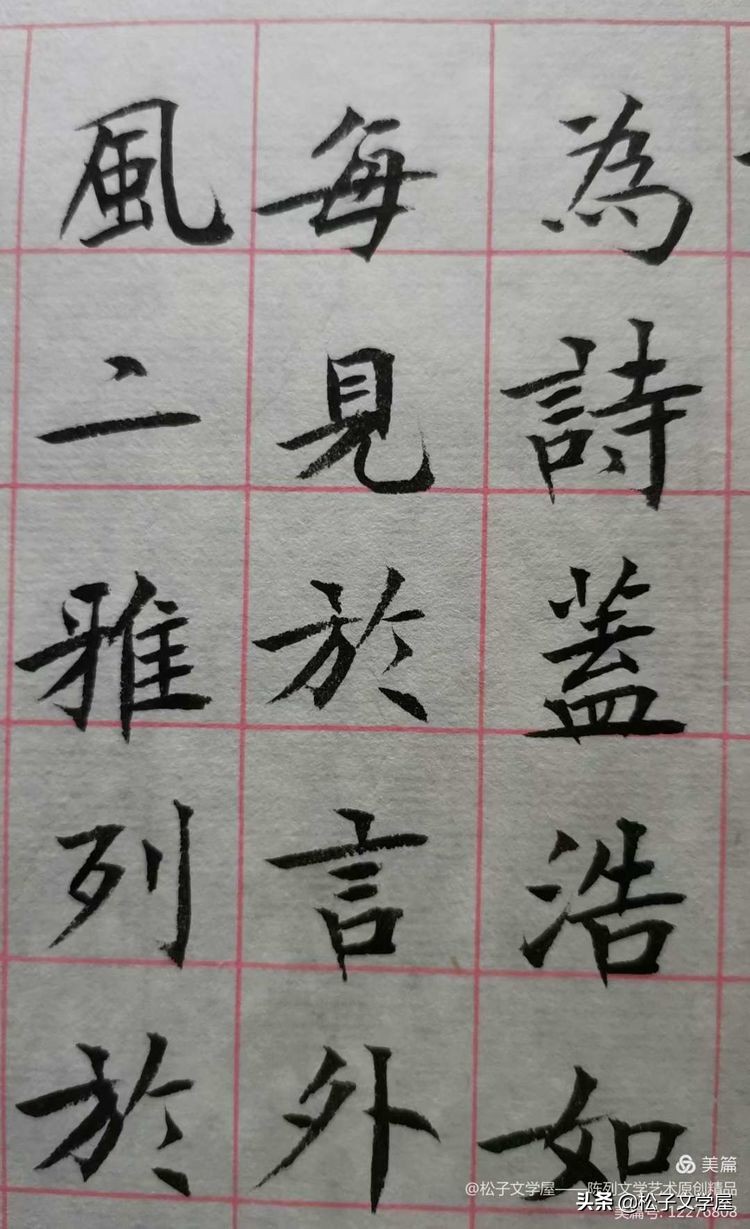 為詩蓋浩如
每見於言外
風二雅列於
美篇
@松子文学屋——陈列文学艺术原创精品
头条 @松子文学屋
美篇号: 12276808